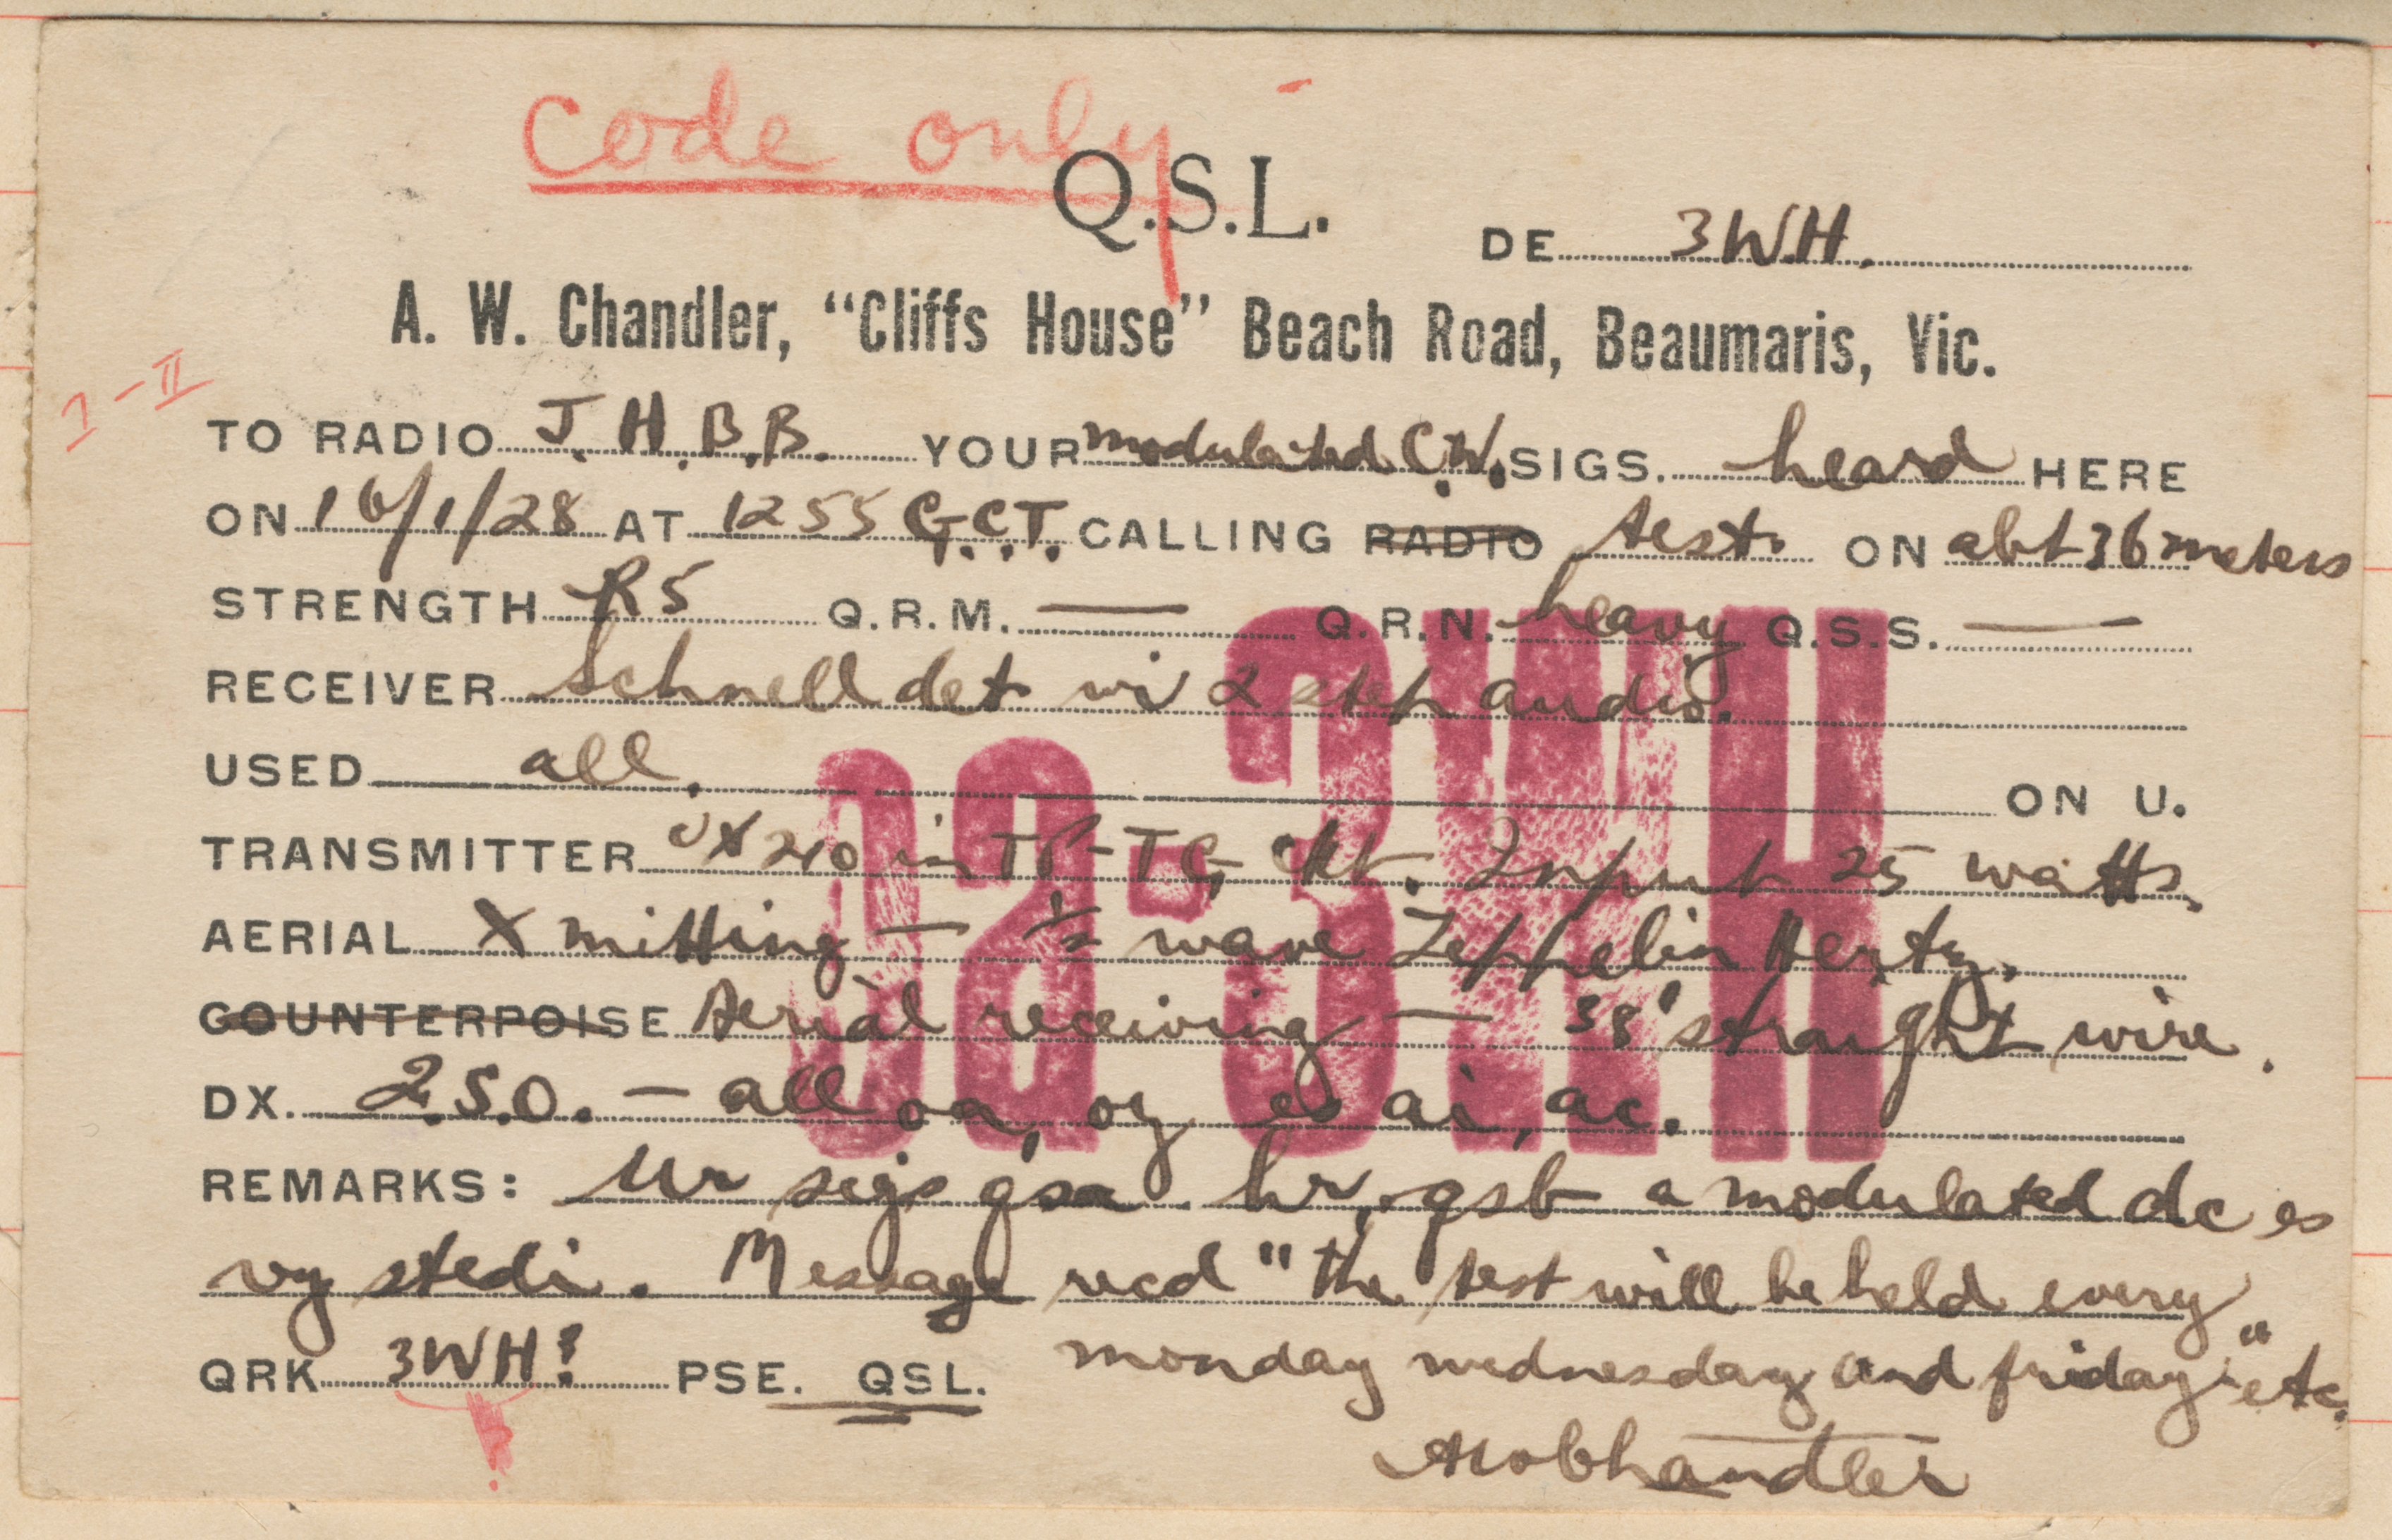 code only
Q.S.L.
DE 3 W.H.
A. W. Chandler, “Cliffs House” Beach Road, Beaumaris, Vic.
1-II
TO RADIO J.H.B.B. YOUR modulated C.W. SIGS. heard HERE
ON 16/1/28 AT 1255 G.C.T. CALLING RADIO test. ON abt 36 meters
STRENGTH R5 Q.R.M. — Q.R.N. heavy Q.S.S. —
RECEIVER Schnell det wi 2 step audio.
USED all. ON U.
TRANSMITTER UX210 in TP-TG ckt. Input 25 watts.
AERIAL Xmitting — ½ wave Zeppelin Hertz.
COUNTERPOISE Aerial receiving — 38' straight wire.
DX. 2.S.O. — all oa, oz es ai, ac.
oa-3WH
REMARKS: Ur sigs qsa hr, qsb a modulated dc es
vy stedi. Message recd "the test will be held every
QRK 3WH? PSE. QSL. monday wednesday and friday" etc.
?
AWChandler